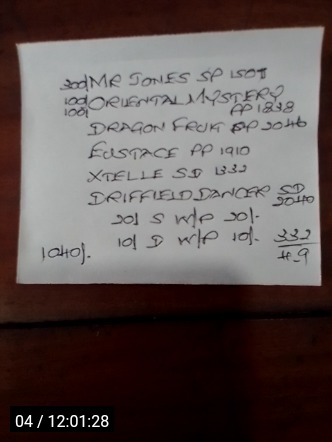 300/ MR JONES SP 1507
100/ ORIENTAL MYSTERY
100/ PP 1838
DRAGON FRUIT SP 2046
EUSTACE PP 1910
XTELLE SD 1332
DRIFFIELD DANCER SD
2040
20/ S W/P 20/-
10/ D W/P 10/-
1040/-
332
#9
04 / 12:01:28